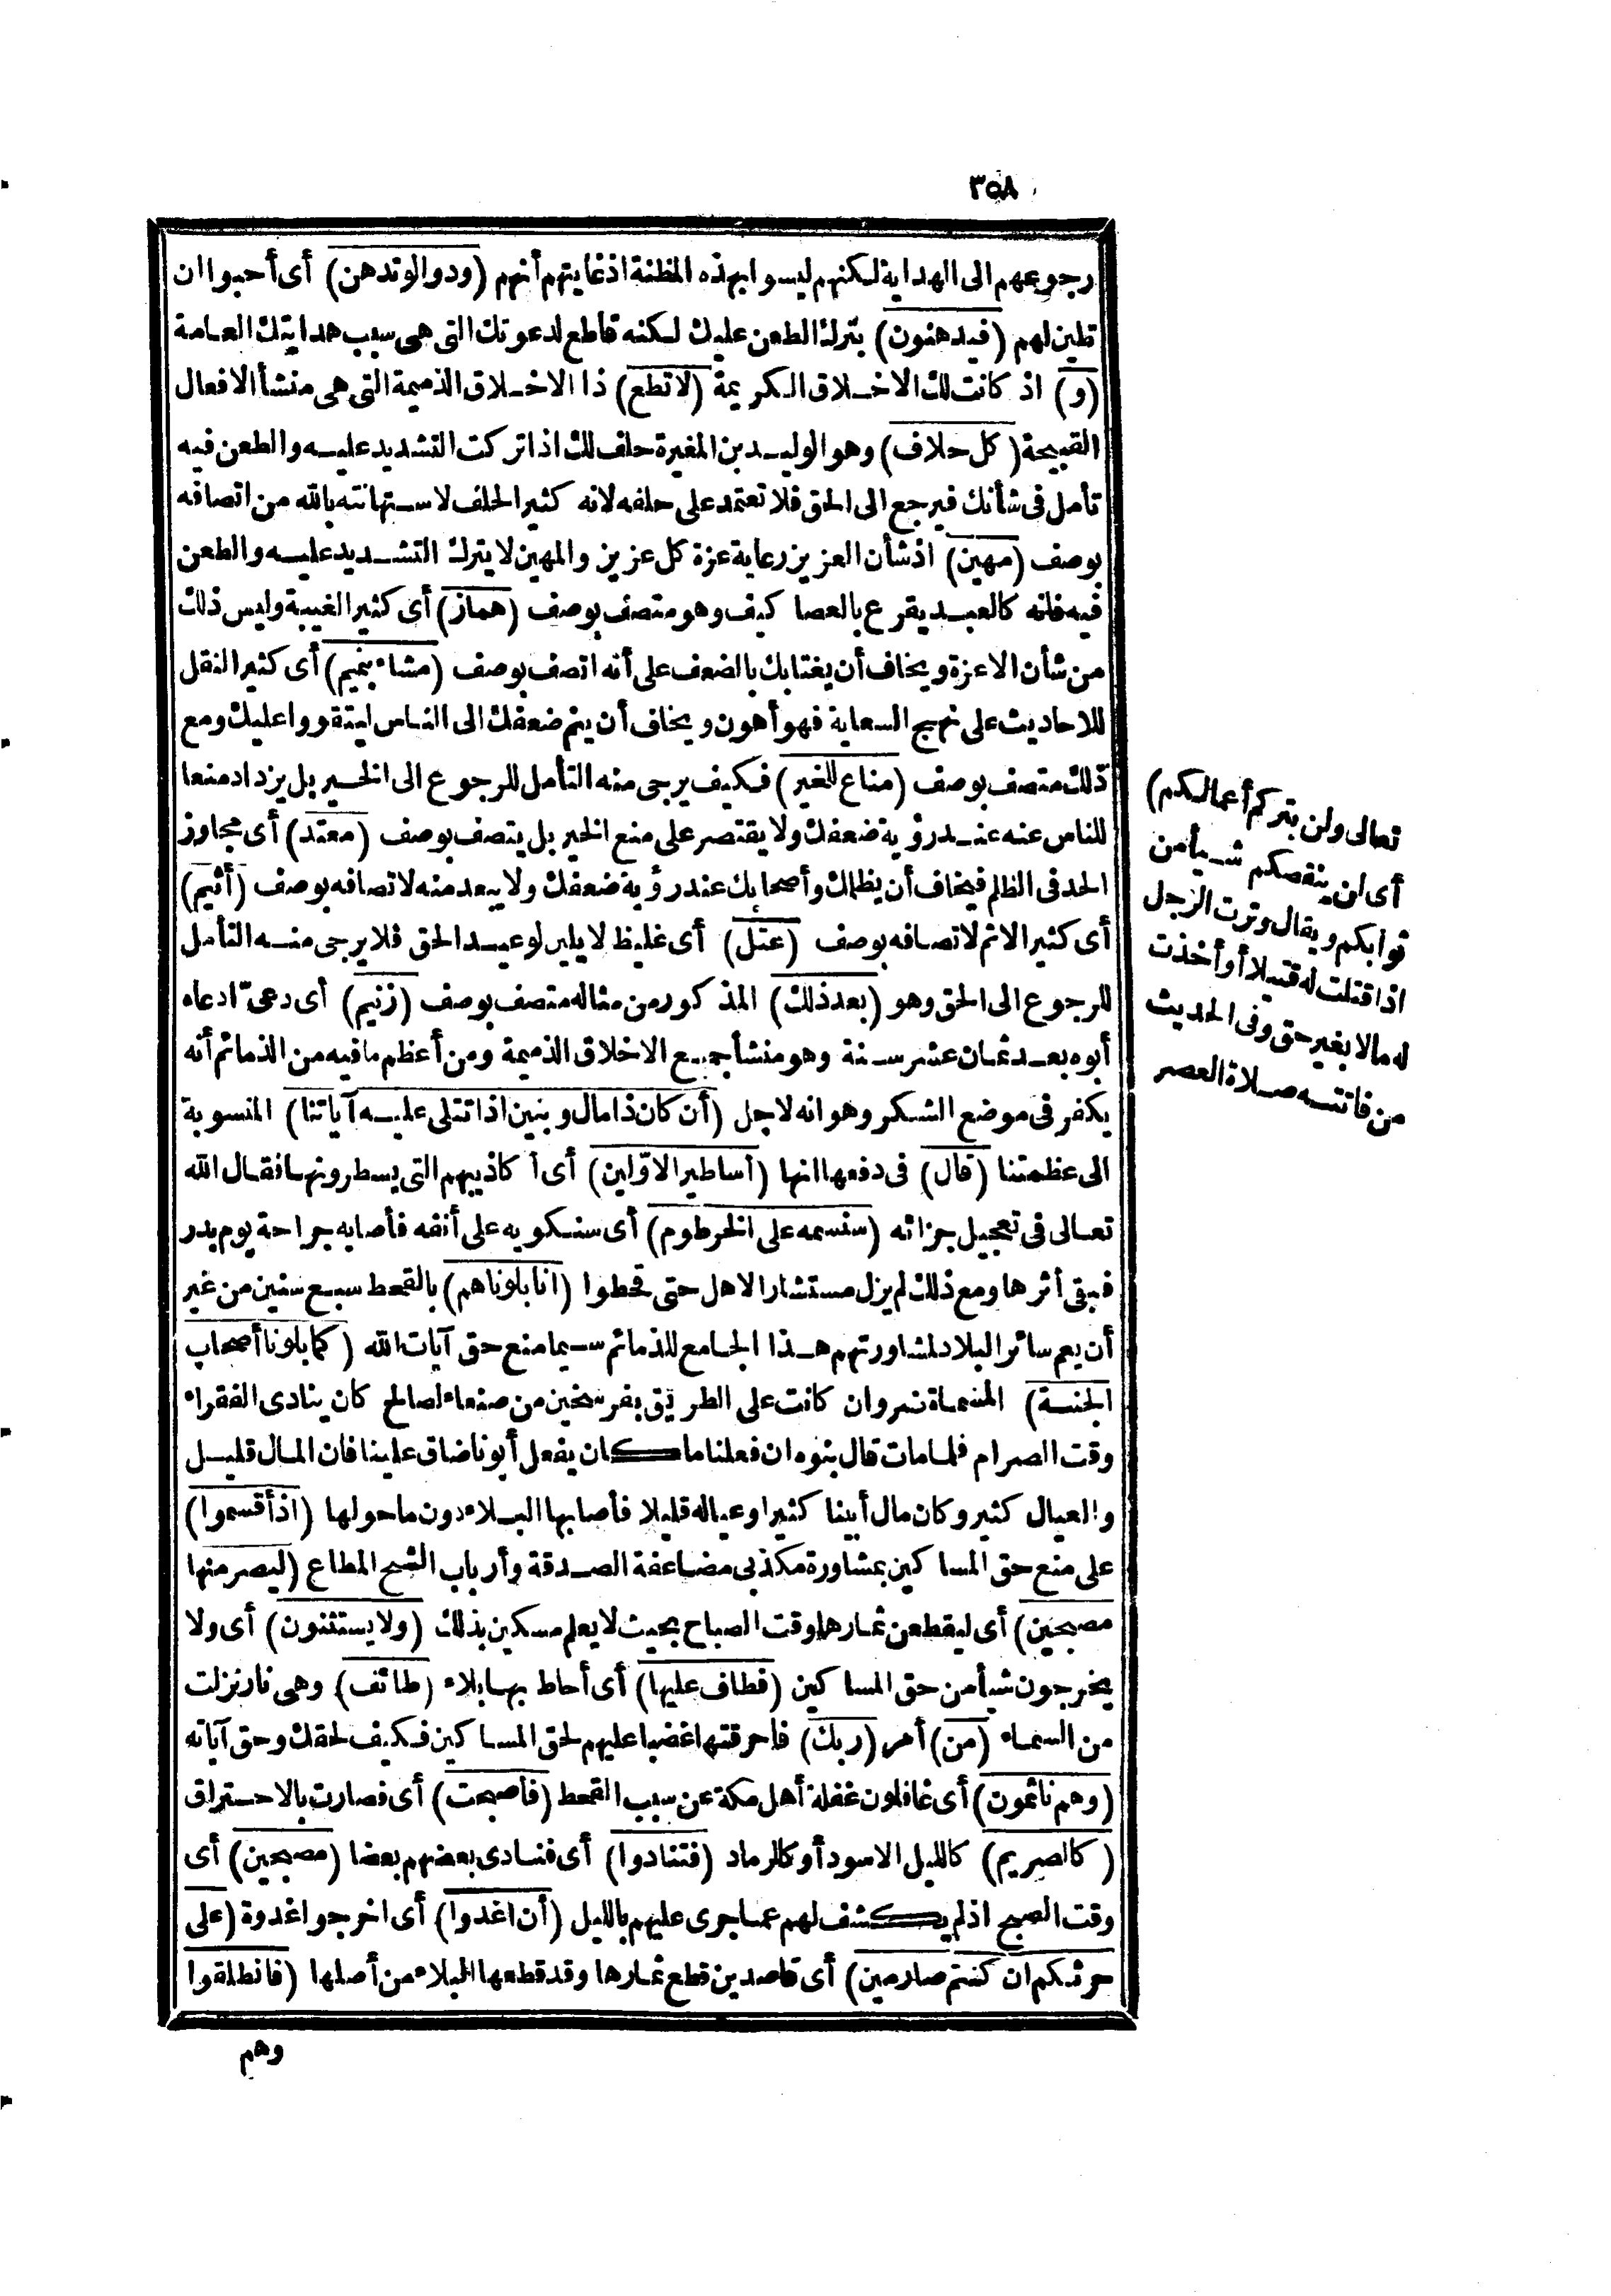 ٣٥٨
رجوعهم الى الهداية لكنهم ليسوا بهذه المظنة اذ غايتهم أنهم (ودوا لو تدهن) أى أحبوا ان
تلين لهم (فيدهنون) بترك الطعن عليك لكنه قاطع لدعوتك التى هى سبب هدايتك العامة
(و) اذ كانت لك الاخلاق الكريمة (لا تطع) ذا الاخلاق الذميمة التى هى منشأ الافعال
القبيحة (كل حلاف) وهو الوليد بن المغيرة حلف لك اذا تركت التشديد عليه والطعن فيه
تأمل فى شأنك فيرجع الى الحق فلا تعتمد على حلفه لانه كثير الحلف لاستهانته بالله من اتصافه
بوصف (مهين) اذ شأن العزيز رعاية عزة كل عزيز والمهين لا يترك التشديد عليه والطعن
فيه فانه كالعبد يقرع بالعصا كيف وهو متصف بوصف (هماز) أى كثير الغيبة وليس ذلك
من شأن الاعزة ويخاف أن يغتابك بالضعف على أنه اتصف بوصف (مشاء بنميم) أى كثير النقل
للاحاديث على نهج السعاية فهو أهون ويخاف أن ينم ضعفك الى الناس ليتقووا عليك ومع
ذلك متصف بوصف (مناع للخير) فكيف يرجى منه التأمل للرجوع الى الخير بل يزداد منعا
للناس عنه عند رؤية ضعفك ولا يقتصر على منع الخير بل يتصف بوصف (معتد) أى مجاوز
الحد فى الظلم فيخاف أن يظلمك وأصحابك عند رؤية ضعفك ولا يبعد منه لاتصافه بوصف (أثيم)
أى كثير الاثم لاتصافه بوصف (عتل) أى غليظ لا يلين لوعيد الحق فلا يرجى منه التأمل
للرجوع الى الحق وهو (بعد ذلك) المذكور من مثاله متصف بوصف (زنيم) أى دعىّ ادعاه
أبوه بعد ثمان عشر سنة وهو منشأ جميع الاخلاق الذميمة ومن أعظم ما فيه من الذمائم أنه
يكفر فى موضع الشكر وهو انه لاجل (أن كان ذا مال وبنين اذا تتلى عليه آياتنا) المنسوبة
الى عظمتنا (قال) فى دفعها انها (أساطير الاوّلين) أى أكاذيبهم التى يسطرونها فقال الله
تعالى فى تعجيل جزائه (سنسمه على الخرطوم) أى سنكويه على أنفه فأصابه جراحة يوم بدر
فبقى أثرها ومع ذلك لم يزل مستشار الاهل حتى قحطوا (انا بلوناهم) بالقحط سبع سنين من غير
أن يعم سائر البلاد لمشاورتهم هذا الجامع للذمائم سيما منع حق آيات الله (كما بلونا أصحاب
الجنة) المسماة نروان كانت على الطريق بفرسخين من صنعاء لصالح كان ينادى الفقراء
وقت الصرام فلما مات قال بنوه ان فعلنا ما كان يفعل أبونا ضاق علينا فان المال قليل
والعيال كثير وكان مال أبينا كثيرا وعياله قليلا فأصابها البلاء دون ما حولها (اذ أقسموا)
على منع حق المساكين بمشاورة مكذبى مضاعفة الصدقة وأرباب الشح المطاع (ليصرمنها
مصبحين) أى ليقطعن ثمارها وقت الصباح بحيث لا يعلم مسكين بذلك (ولا يستثنون) أى ولا
يخرجون شيأ من حق المساكين (فطاف عليها) أى أحاط بها بلاء (طائف) وهى نار نزلت
من السماء (من) أمر (ربك) فاحرقتها غضبا عليهم لحق المساكين فكيف لحقك وحق آياته
(وهم نائمون) أى غافلون غفلة أهل مكة عن سبب القحط (فأصبحت) أى فصارت بالاحتراق
(كالصريم) كالليل الاسود أو كالرماد (فتنادوا) أى فنادى بعضهم بعضا (مصبحين) أى
وقت الصبح اذ لم يكشف لهم عما جرى عليهم بالليل (أن اغدوا) أى اخرجوا غدوة (على
حرثكم ان كنتم صارمين) أى قاصدين قطع ثمارها وقد قطعها البلاء من أصلها (فانطلقوا
وهم
تعالى ولن يتركم أعمالكم)
أى لن ينقصكم شيأ من
ثوابكم ويقال وترت الرجل
اذا قتلت له قتيلا أو أخذت
له مالا بغير حق وفى الحديث
من فاتته صلاة العصر